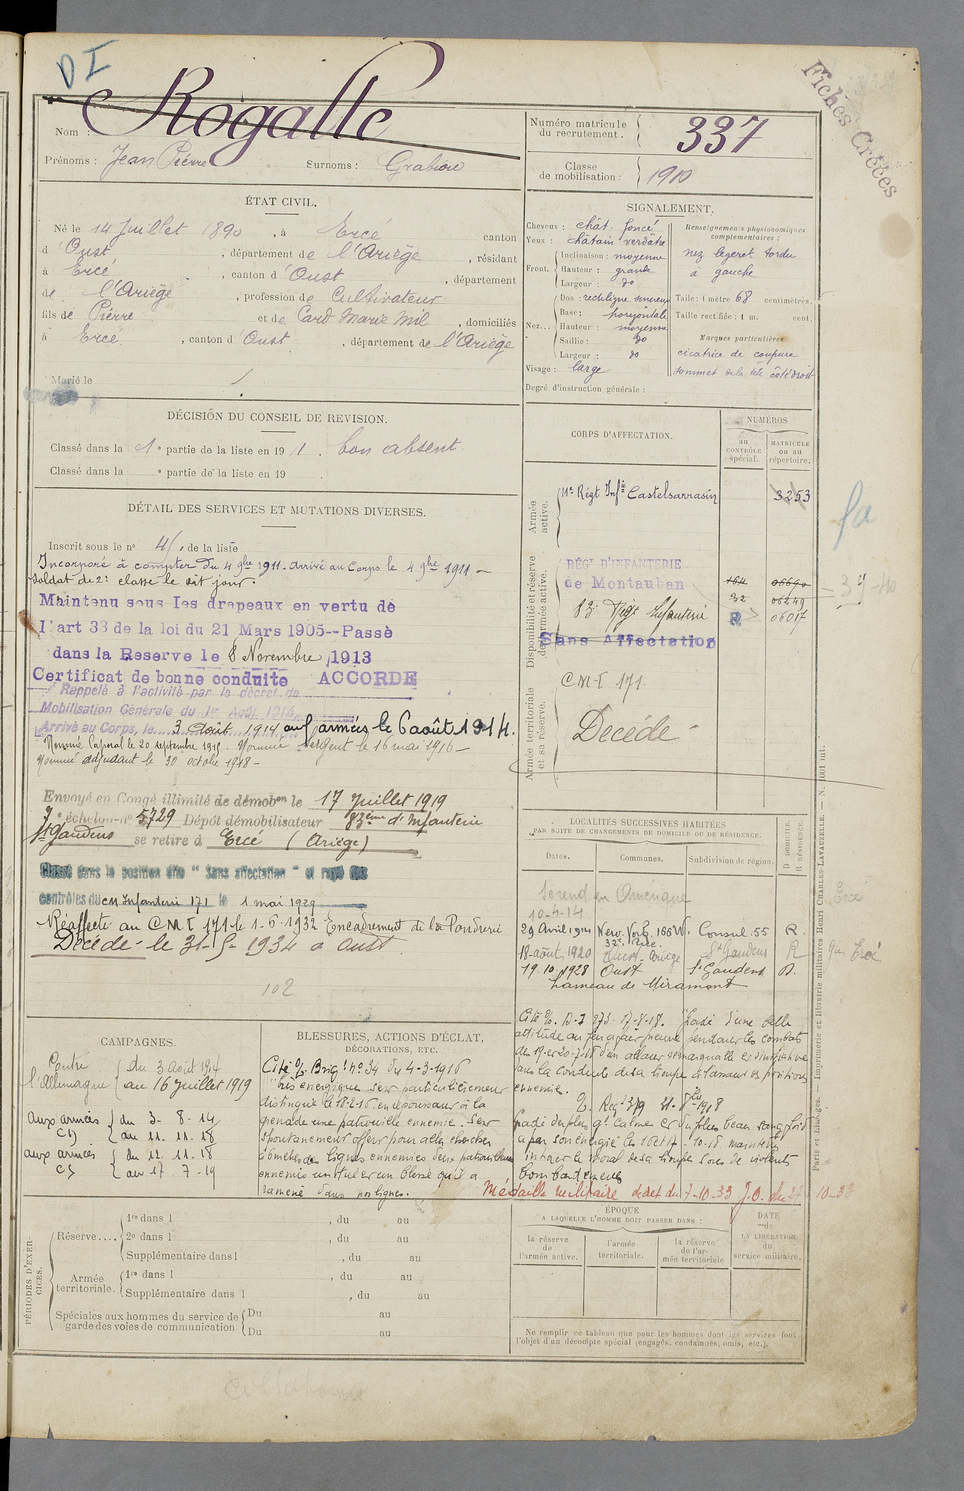 D I
Fiches Créées
Nom : Rogalle
Prénoms : Jean Pierre Surnoms :
Numéro matricule du recrutement. 337
Classe de mobilisation : 1910
ÉTAT CIVIL.
Né le 14 Juillet 1890, à Ercé canton
d'Oust, département de l'Ariège, résidant
à Ercé, canton d'Oust, département
de l'Ariège, profession de Cultivateur
fils de Pierre et de Card Marie Mil, domiciliés
à Ercé, canton d'Oust, département de l'Ariège
Marié le
SIGNALEMENT.
Cheveux : chât. foncé
Yeux : châtain verdâtre
Front. Inclinaison : moyenne
Hauteur : grande
Largeur : do
Nez... Dos : rectiligne sinueux
Base : horizontale
Hauteur : moyenne
Saillie : do
Largeur : do
Visage : large
Degré d'instruction générale :
Renseignements physionomiques complémentaires :
nez légeret tordu
à gauche
Taille : 1 mètre 68 centimètres.
Taille rectifiée : 1 m. cent.
Marques particulières
cicatrice de coupure
sommet de la tête côté droit
DÉCISION DU CONSEIL DE REVISION.
Classé dans la 1e partie de la liste en 1911. bon absent
Classé dans la e partie de la liste en 19
DÉTAIL DES SERVICES ET MUTATIONS DIVERSES.
Inscrit sous le no 41, de la liste
Incorporé à compter du 4 9bre 1911. Arrivé au Corps le 4 9bre 1911 —
soldat de 2e classe le dit jour.
Maintenu sous les drapeaux en vertu de
l'art 33 de la loi du 21 Mars 1905--Passé
dans la Reserve le 8 Novembre 1913
Certificat de bonne conduite ACCORDÉ
Rappelé à l'activité par le décret de
Mobilisation Générale du 1er Août 1914
Arrivé au Corps, le 3 Août 1914 aux armées le 6 août 1914.
Nommé Caporal le 20 septembre 1915. Nommé sergent le 16 mai 1916 —
Nommé adjudant le 30 octobre 1918 —
Envoyé en Congé illimité de démobon le 17 Juillet 1919
7e échelon no 5729 Dépôt démobilisateur 83ème d'Infanterie
St Gaudens se retire à Ercé (Ariège)
Classé dans la position dite "Sans affectation" et rayé des
contrôles du CM Infanterie 171 le 1 mai 1929
Réaffecté au CMI 171 le 1-6-1932 Encadrement de la Poudrerie
Décédé le 31-5-1934 à Oust
102
CORPS D'AFFECTATION.
NUMÉROS
au CONTRÔLE spécial.
MATRICULE ou au répertoire.
Armée active.
11e Régt Infie Castelsarrasin 3253
Disponibilité et réserve de l'armée active.
RÉGt D'INFANTERIE
de Montauban 164
32 06249
83e Régt Infanterie R 06017
Sans Affectation
Armée territoriale et sa réserve.
CMI 171.
Décédé
LOCALITÉS SUCCESSIVES HABITÉES
PAR SUITE DE CHANGEMENTS DE DOMICILE OU DE RÉSIDENCE.
Dates. Communes. Subdivision de région. D DOMICILE. R RÉSIDENCE.
Se rend en Amérique
10-4-14
29 Avril 1914 New-York. 166 W. 32e Rue. Consul. 55 R.
18-août 1920 Ariège St Gaudens R
19.10.1928 Oust St Gaudens D.
hameau de Miramont
CAMPAGNES.
Contre l'Allemagne du 3 août 1914
au 16 juillet 1919
aux armées du 3-8-14
au 11.11.18
aux armées du 12.11.18
au 17-7-19
BLESSURES, ACTIONS D'ÉCLAT,
DÉCORATIONS, ETC.
Cité O. Brig. no 34 du 4-3-1916
Très énergique s'est particulièrement
distingué le 18-2-16 en repoussant à la
grenade une patrouille ennemie. S'est
spontanément offert pour aller chercher
ennemis un blessé qu'il a
ramené dans nos lignes.
17-8-18.
attitude au feu
dans la conduite de sa troupe
ennemie.
O. Régt 319
bombardements
Médaille militaire décret du 7-10-33 J.O. du 27-10-33
PÉRIODES D'EXERCICES.
Réserve.... 1re dans l , du au
2e dans l , du au
Supplémentaire dans l , du au
Armée territoriale. 1re dans l , du au
Supplémentaire dans l , du au
Spéciales aux hommes du service de garde des voies de communication Du au
Du au
ÉPOQUE
A LAQUELLE L'HOMME DOIT PASSER DANS :
la réserve de l'armée active.
l'armée territoriale.
la réserve de l'armée territoriale
DATE de LA LIBÉRATION du service militaire.
Ne remplir ce tableau que pour les hommes dont les services font
l'objet d'un décompte spécial (engagés, condamnés, omis, etc.).
Paris et Limoges. — Imprimerie et librairie militaires Henri CHARLES-LAVAUZELLE. —